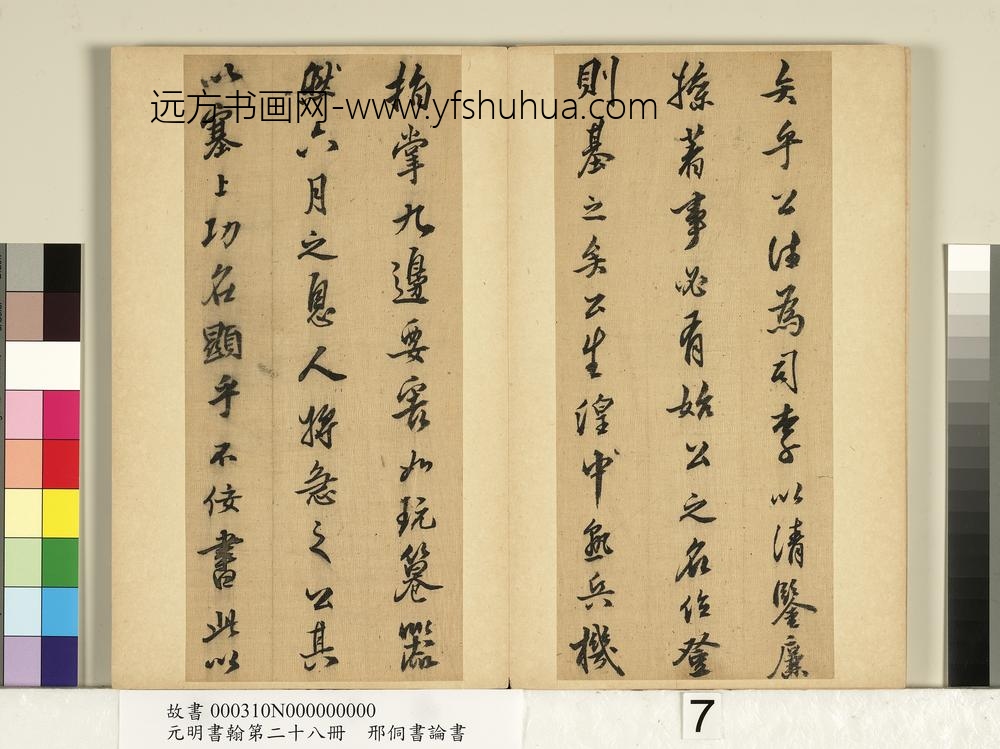 矣乎公往為司李以清鑒廉
操著事必有始公之名位登
則基之矣公生湟中熟兵機
指掌九邊要害如玩篹器
然六月之息人將急之公其
以塞上功名顯乎不佞書此以
远方书画网-www.yfshuhua.com
故書 000310N000000000
元明書翰第二十八冊 邢侗書論書
7